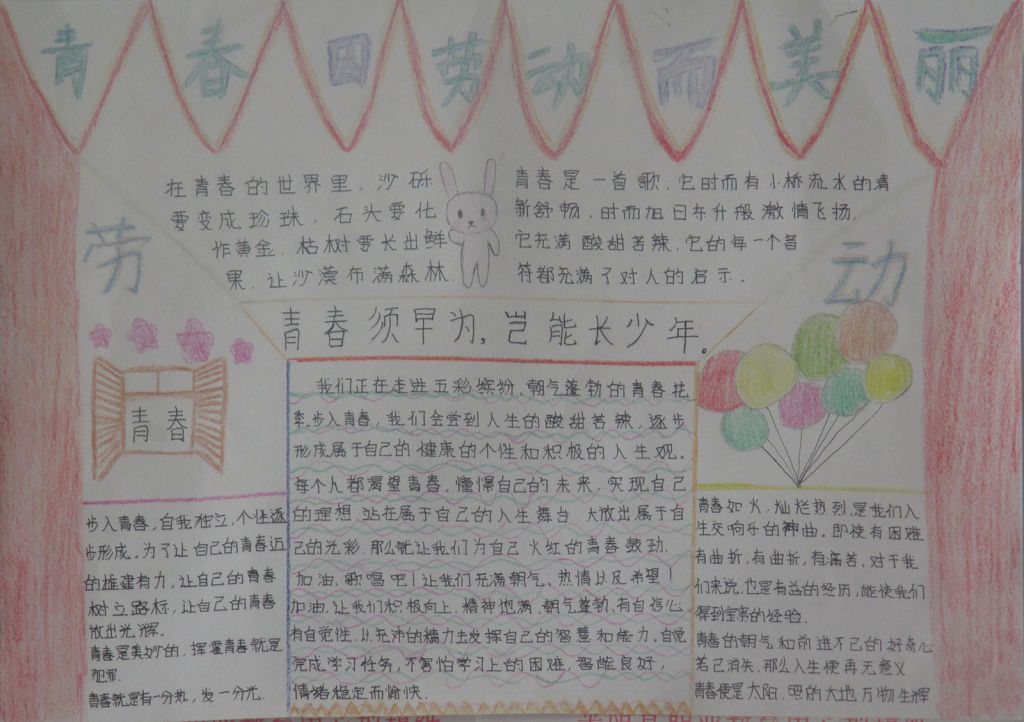 青春因劳动而美丽
在青春的世界里,沙砾
要变成珍珠,石头要化
作黄金.枯树要长出鲜
果.让沙漠布满森林.
青春是一首歌,它时而有小桥流水的清
新舒畅,时而旭日东升般激情飞扬.
它充满酸甜苦辣.它的每一个音
符都充满了对人的启示。
劳动
青春须早为,岂能长少年。
青春
步入青春,自我独立,个性逐
步形成。为了让自己的青春迈
的雄建有力,让自己的青春
树立路标,让自己的青春
放出光辉。
青春是美妙的,挥霍青春就是
犯罪.
青春就是有一分热,发一分光.
我们正在走进五彩缤纷、朝气蓬勃的青春花
季.步入青春,我们会尝到人生的酸甜苦辣,逐步
形成属于自己的健康的个性和积极的人生观。
每个人都渴望青春,憧憬自己的未来,实现自己
的理想.站在属于自己的人生舞台 大放出属于自
己的光彩.那么就让我们为自己火红的青春鼓劲.
加油.歌唱吧!让我们充满朝气、热情以及希望!
加油.让我们积极向上,精神饱满、朝气蓬勃、有自信心
有自觉性,以充沛的精力去发挥自己的智慧和能力。自觉
完成学习任务,不害怕学习上的困难,智能良好,
情绪稳定而愉快.
青春如火,灿烂热烈,是我们人
生交响乐的神曲。即使有困难
有曲折,有曲折,有痛苦,对于我
们来说,也是有益的经历,能使我们
得到宝贵的经验.
青春的朝气和前进不已的好奇心
若已消失,那么人生便再无意义
青春便是太阳,照的大地万物生辉